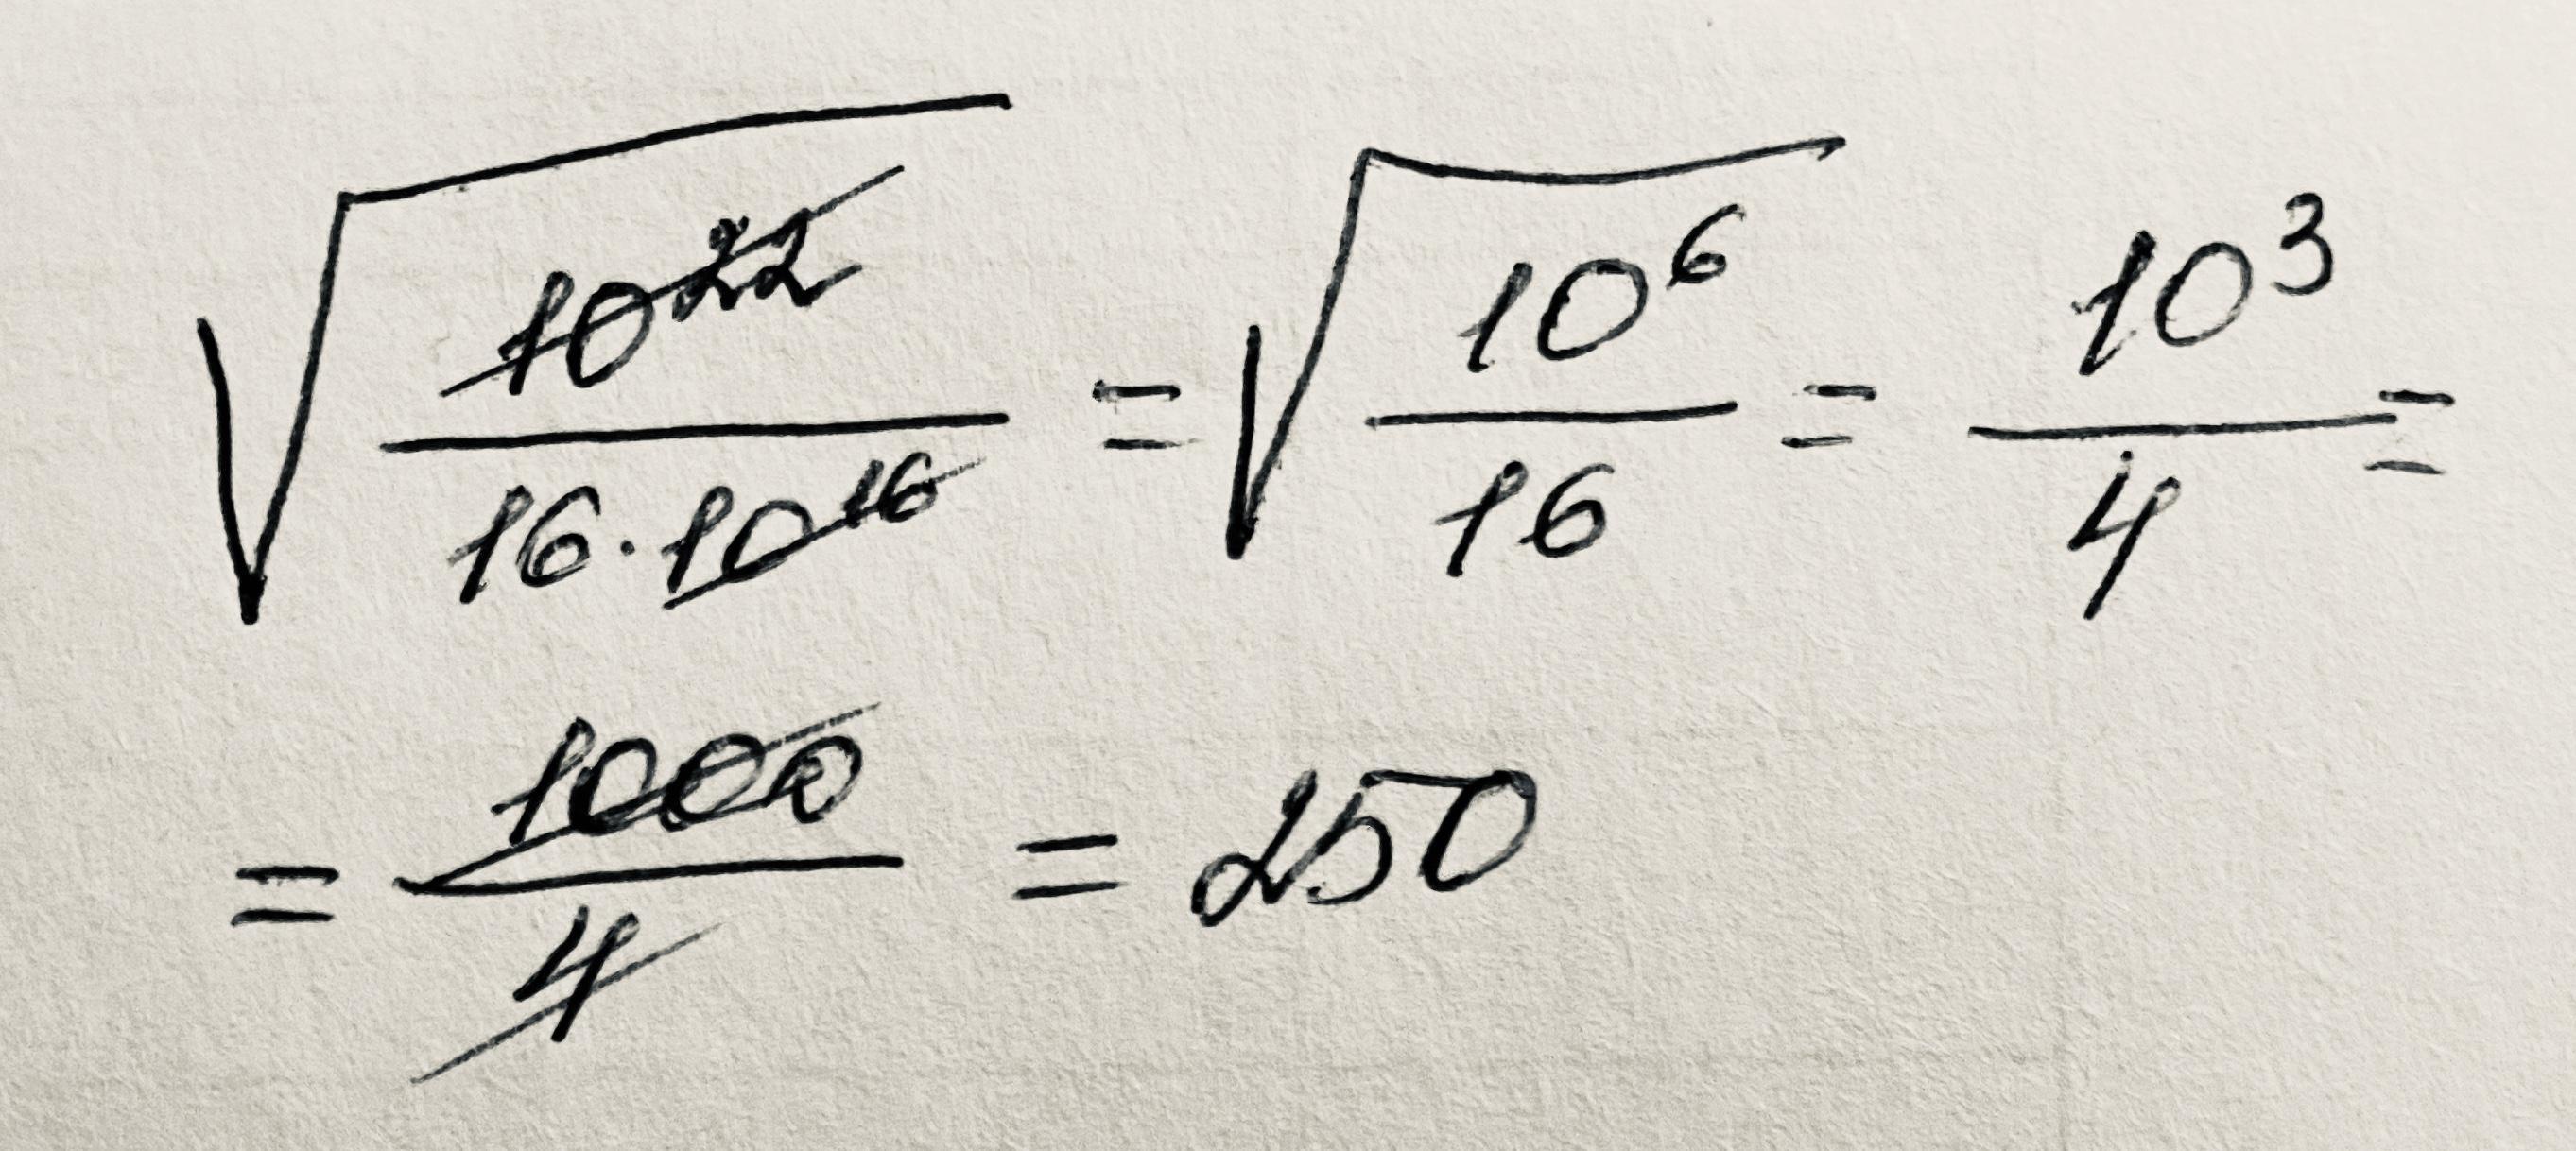 √(10²²/(16·10¹⁶)) = √(10⁶/16) = 10³/4 =
= 1000/4 = 250